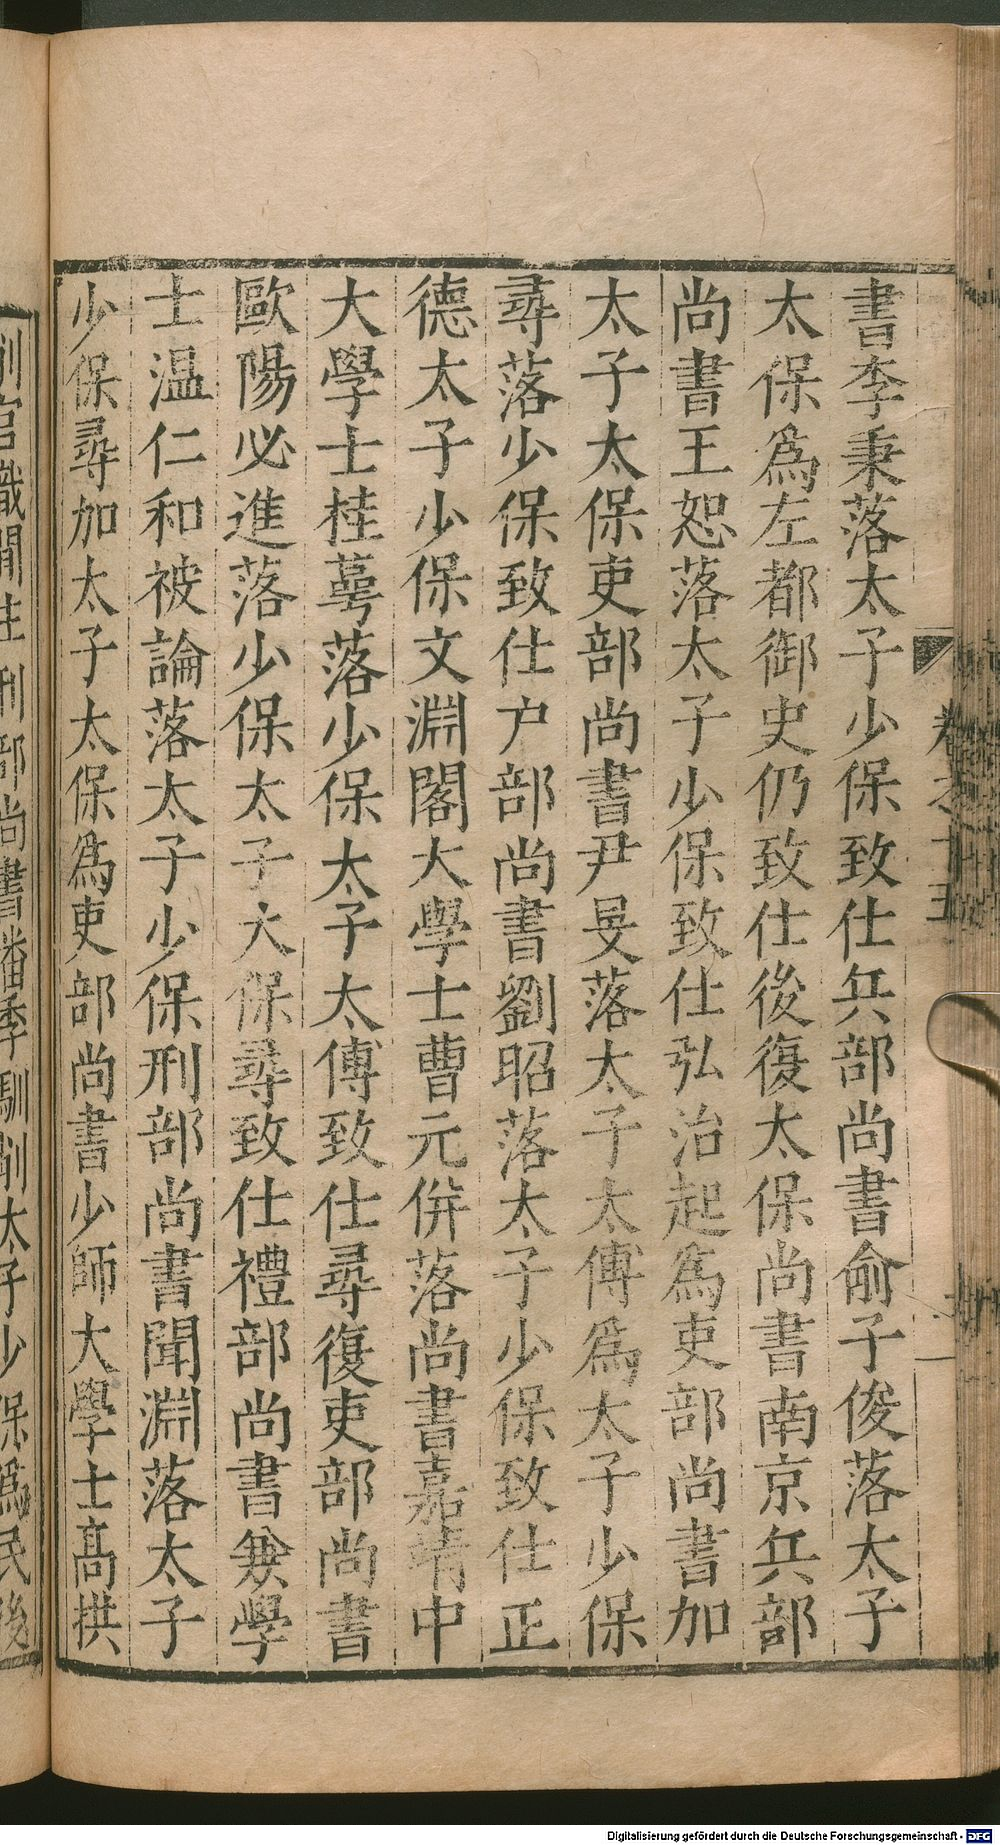 書李秉落太子少保致仕兵部尚書俞子俊落太子
太保為左都御史仍致仕後復太保尚書南京兵部
尚書王恕落太子少保致仕弘治起為吏部尚書加
太子太保吏部尚書尹旻落太子太傅為太子少保
尋落少保致仕户部尚書劉昭落太子少保致仕正
德太子少保文淵閣大學士曹元併落尚書嘉靖中
大學士桂萼落少保太子太傅致仕尋復吏部尚書
歐陽必進落少保太子太保尋致仕禮部尚書兼學
士温仁和被論落太子少保刑部尚書聞淵落太子
少保尋加太子太保為吏部尚書少師大學士高拱
削官職閒住刑部尚書潘季馴削太子少保為民後
Digitalisierung gefördert durch die Deutsche Forschungsgemeinschaft - DFG